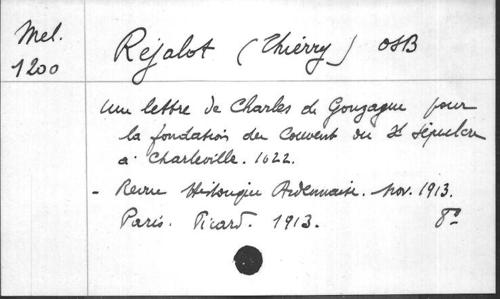 Mel.
1200
Réjalot (Thierry) OSB
Une lettre de Charles de Gonzague pour
la fondation du Couvent du St Sépulcre
à Charleville. 1622.
- Revue Historique Ardennaise. Nov. 1913.
Paris. Picard. 1913. 8°